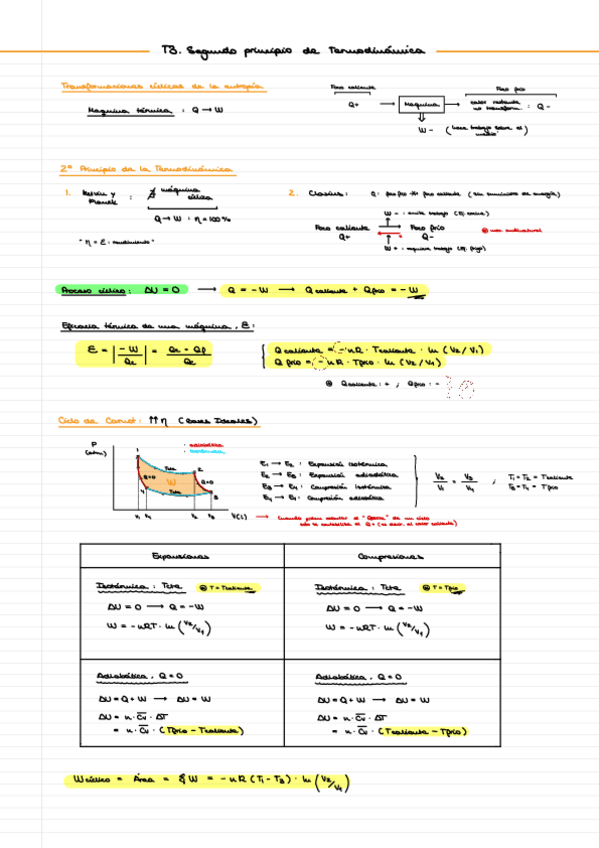 T3. Segundo principio de Termodinámica
Transformaciones cíclicas de la entropía
Máquina térmica : Q → W
Foco caliente
Q+
Máquina
Foco frío
calor restante no transform. : Q -
W - (hace trabajo sobre el medio)
2º Principio de la Termodinámica
1. Kelvin y Planck : ∄ máquina cíclica
Q → W : η = 100%
"η = ε : rendimiento"
2. Clasius : Q: foco frío ↛ foco caliente (sin suministro de energía)
W - : emite trabajo
Foco caliente
Q+
Foco frío
Q-
W + : requiere trabajo
Proceso cíclico : ΔU = 0 → Q = -W → Q caliente + Q frío = -W
Eficacia térmica de una máquina, ε :
ε = |-W / Qc| = Qc - Qf / Qc
Q caliente = -nR · Tcaliente · ln (V2/V1)
Q frío = -nR · Tfrío · ln (V2/V1)
Qcaliente : + ; Qfrío : -
Ciclo de Carnot : ↑↑η (Gases Ideales)
P (atm)
: adiabática
: isotérmica
1
Tcte
2
Q=0
W
Q=0
4
Tcte
3
V1 V4 V2 V3 V(L)
E1 → E2 : Expansión isotérmica
E2 → E3 : Expansión adiabática
E3 → E4 : Compresión isotérmica
E4 → E1 : Compresión adiabática
V2/V1 = V3/V4 ; T1 = T2 = Tcaliente
T3 = T4 = Tfrío
Expansiones
Compresiones
Isotérmica : Tcte
T = Tcaliente
ΔU = 0 → Q = -W
W = -nRT · ln (V2/V1)
Isotérmica : Tcte
T = Tfrío
ΔU = 0 → Q = -W
W = -nRT · ln (V2/V1)
Adiabática, Q = 0
ΔU = Q + W → ΔU = W
ΔU = n · Cv · ΔT
= n · Cv · (Tfrío - Tcaliente)
Adiabática, Q = 0
ΔU = Q + W → ΔU = W
ΔU = n · Cv · ΔT
= n · Cv · (Tcaliente - Tfrío)
W cíclico = Área = W = -nR (T1 - T3) · ln (V2/V1)